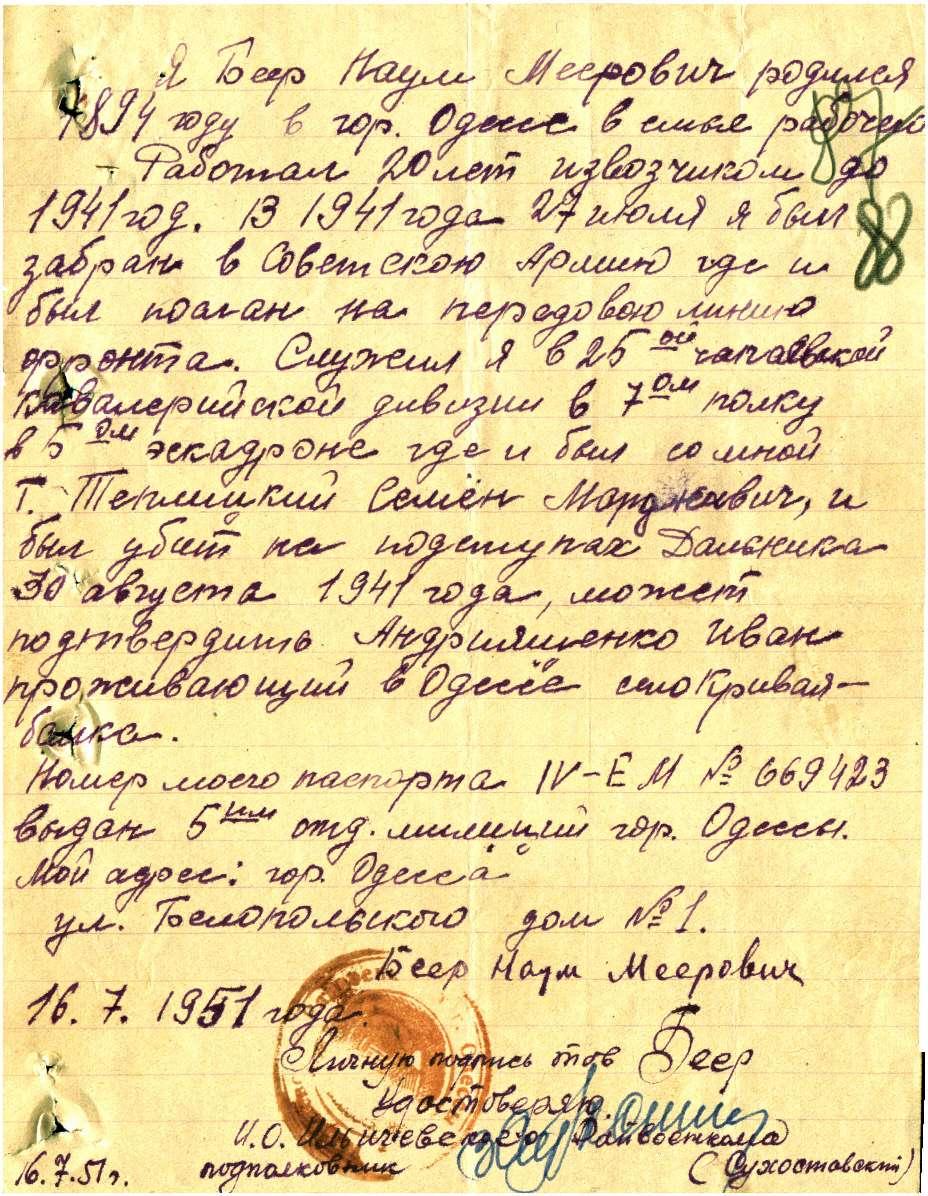 Я Беер Наум Меерович родился
1894 году в гор. Одессе в семье рабочего
Работал 20 лет извозчиком до
1941 год. В 1941 года 27 июля я был
88
забран в Советскою Армию где и
был послан на передовою линию
фронта. Служил я в 25 ой чапаевской
кавалерийской дивизии в 7 ом полку
в 5 ом эскадроне где и был со мной
Г. Теплицкий Семён и
был убит на подступах Дальника
30 августа 1941 года, может
подтвердить Андрияшенко Иван
проживающий в Одессе село Кривая-
балка.
Номер моего паспорта IV-ЕМ № 669423
выдан 5 им отд. милиций гор. Одессы.
Мой адрес: гор. Одесса
ул. Белопольского дом №1.
Беер Наум Меерович
16. 7. 1951 года.
Личную подпись тов Беер
Удостоверяю.
И.О. Ильичевского Райвоенкома
16.7.51г. подполковник (Сухоставский)